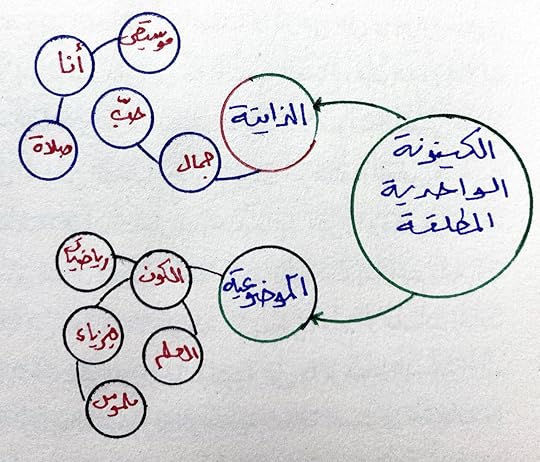 الكينونة
الواحدية
المطلقة
الذاتية
جمال
حبّ
موسيقى
أنا
صلاة
الموضوعية
الكون
رياضيات
فيزياء
العلم
ملموس